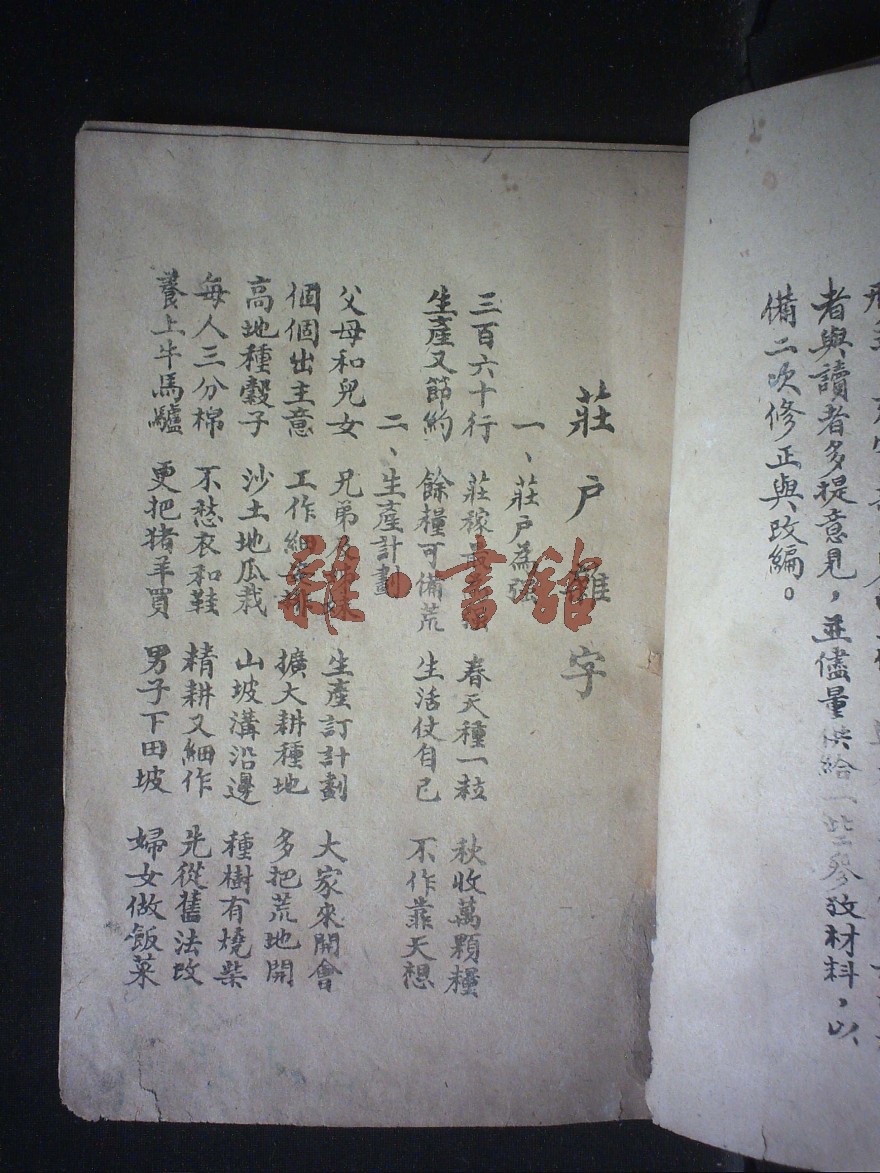 者與讀者多提意見，並儘量供給一些參攷材料，以
備二次修正與改編。
莊户雜字
一、莊户為強
三百六十行 莊稼最 春天種一粒 秋收萬顆糧
生產又節約 餘糧可備荒 生活仗自己 不作靠天想
二、生產計劃
父母和兒女 兄弟 生產訂計劃 大家來開會
個個出主意 工作細 擴大耕種地 多把荒地開
高地種穀子 沙土地瓜栽 山坡溝沿邊 種樹有燒柴
每人三分棉 不愁衣和鞋 精耕又細作 先從舊法改
養上牛馬驢 更把猪羊買 男子下田坡 婦女做飯菜
雜·書舘